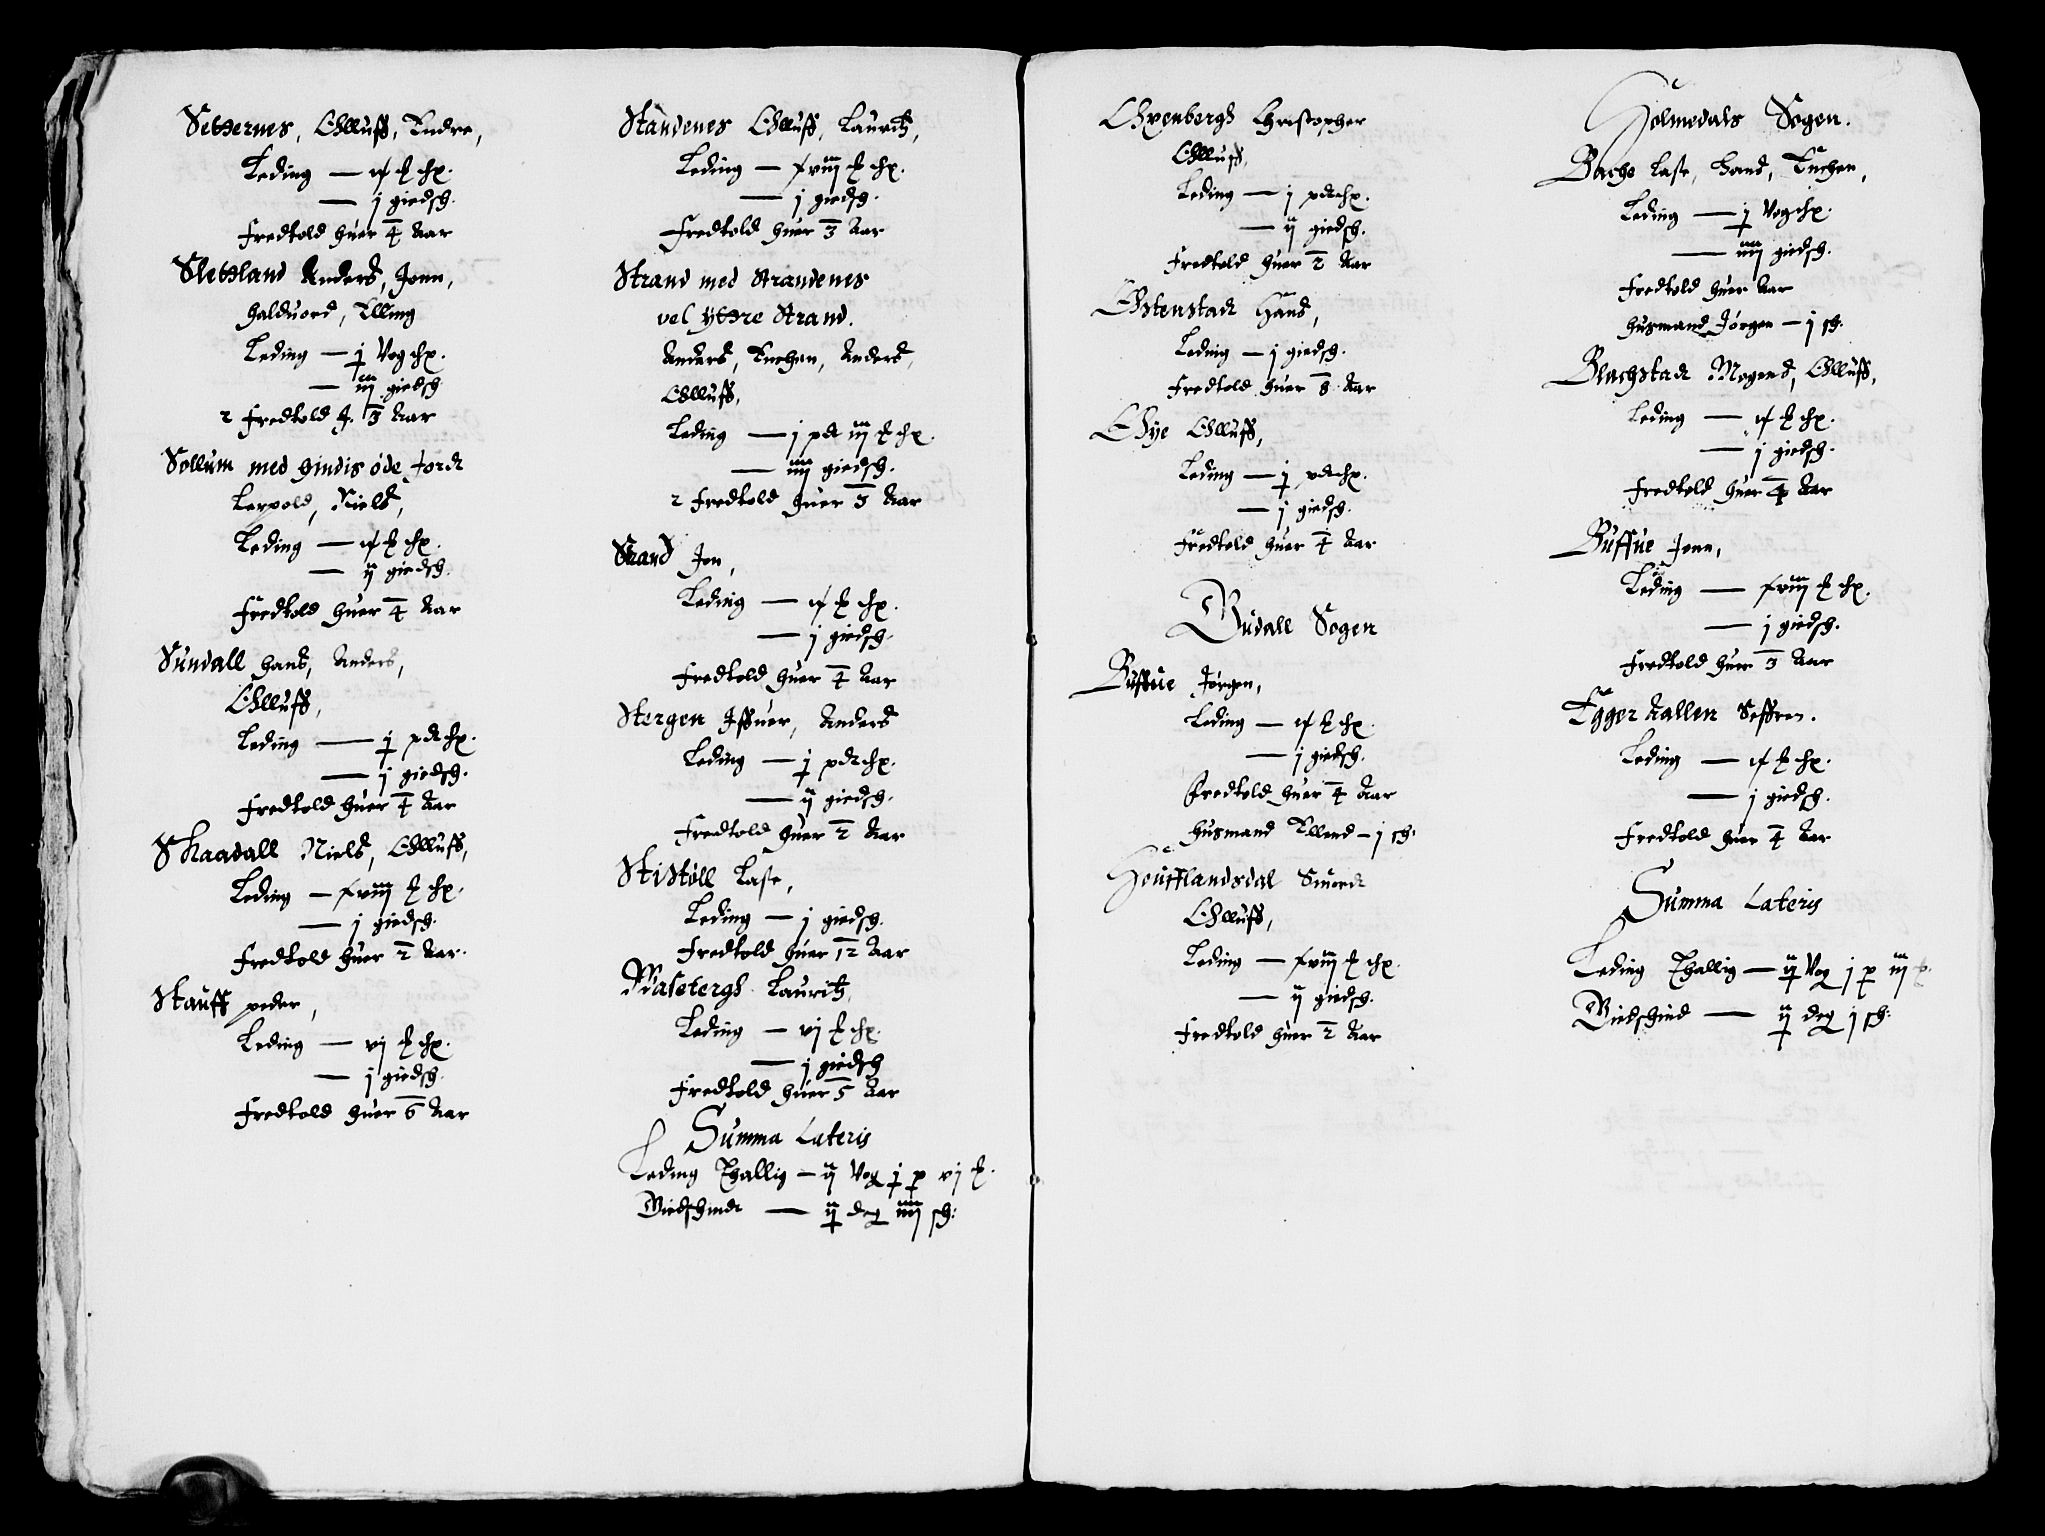 Setternes, Olluff, Endre,
Leding — ix ℔ chp.
— j giedsk.
Fredtold huer 4 Aar
Slettland Anders, Jonn,
Halduord, Elling
Leding — j Vog chp.
— iij giedsk
2 Fredtold h. 3 Aar
Sollum med Hindis øde Jordt
Leepold, Niels,
Leding — ix ℔ chp.
— ij giedsk.
Fredtold huer 4 Aar
Sundall Hans, Anders,
Olluff,
Leding — j pdt chp.
— j giedsk.
Fredtold huer 4 Aar
Skaadall Niels, Olluff,
Leding — xviij ℔ chp.
— j giedsk.
Fredtold huer 2 Aar.
Stauff peder,
Leding — vj ℔ chp.
— j giedsk.
Fredtold huer 6 Aar
Standenes Olluff, Lauritz,
Leding — xviij ℔ chp.
— j giedsk.
Fredtold huer 3 Aar
Strand med Strandenes
vel ÿttre Strand.
Anders, Erchen, Anders,
Olluff,
Leding — j pdt iij ℔ chp.
— iiij giedsk.
2 Fredtold huer 3 Aar
Strand Jon,
Leding — ix ℔ chp.
— j giedsk.
Fredtold huer 4 Aar
Stergen Iffuer, Anders
Leding — j pdt chp.
— ij giedsk.
Fredtold huer 2 Aar
Stistøll Lasse,
Leding — j giedsk.
Fredtold huer 12 Aar
Lauritz,
Leding — vj ℔ chp.
— j giedsk
Fredtold huer 5 Aar
Summa Lateris
Leding Thallig — ij Vog j p vj ℔.
Biedskindt — ij deg iiij sk:
Øxenbergh Christopher
Olluff,
Leding — j pdt chp.
— ij giedsk.
Fredtold huer 2 Aar
Østenstadt Hans,
Leding — j giedsk.
Fredtold huer 8 Aar
Øÿe Olluff,
Leding — j pdt chp.
— j giedsk.
Fredtold huer 4 Aar
Budall Sogen
Buffue Jørgen,
Leding — ix ℔ chp.
— j giedsk.
Fredtold huer 4 Aar
Husmand Ellend — j sk.
Houfflandsdal Siuordt
Olluff,
Leding — xviij ℔ chp.
— ij giedsk.
Fredtold huer 2 Aar
Holmedals Sogen.
Bache Lasse, Hans, Erchen,
Leding — j Vog chp.
— iiij giedsk.
Fredtold huer Aar
Husmand Jørgen — j sk.
Blachstadt Mogens, Olluff,
Leding — ix ℔ chp.
— j giedsk.
Fredtold huer 4 Aar
Buffue Jonn,
Leding — xviij ℔ chp.
— j giedsk.
Fredtold huer 3 Aar
Egger Aallen Seffren.
Leding — ix ℔ chp.
— j giedsk.
Fredtold huer 4 Aar
Summa Lateris
Leding Thallig — ij Vog j p iij ℔.
Biedskind — ij deg j sk: